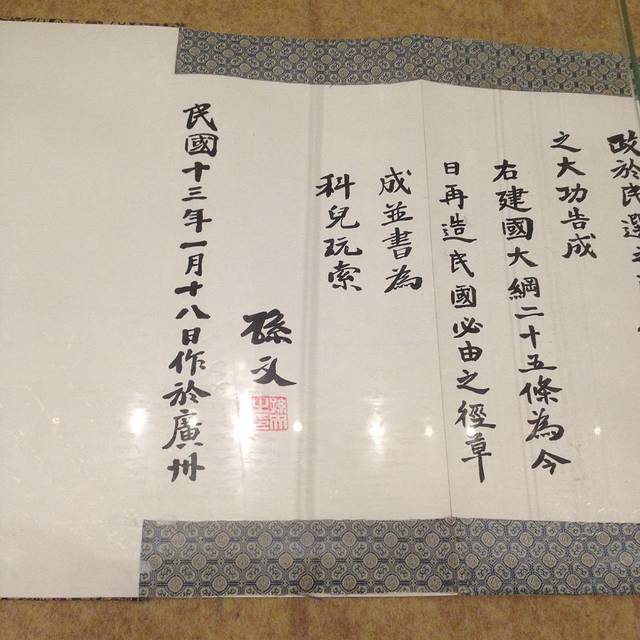 政於民選之
之大功告成
右建國大綱二十五條為今
日再造民國必由之徑草
成並書為
科兒玩索
孫文
孫文之印
民國十三年一月十八日作於廣州